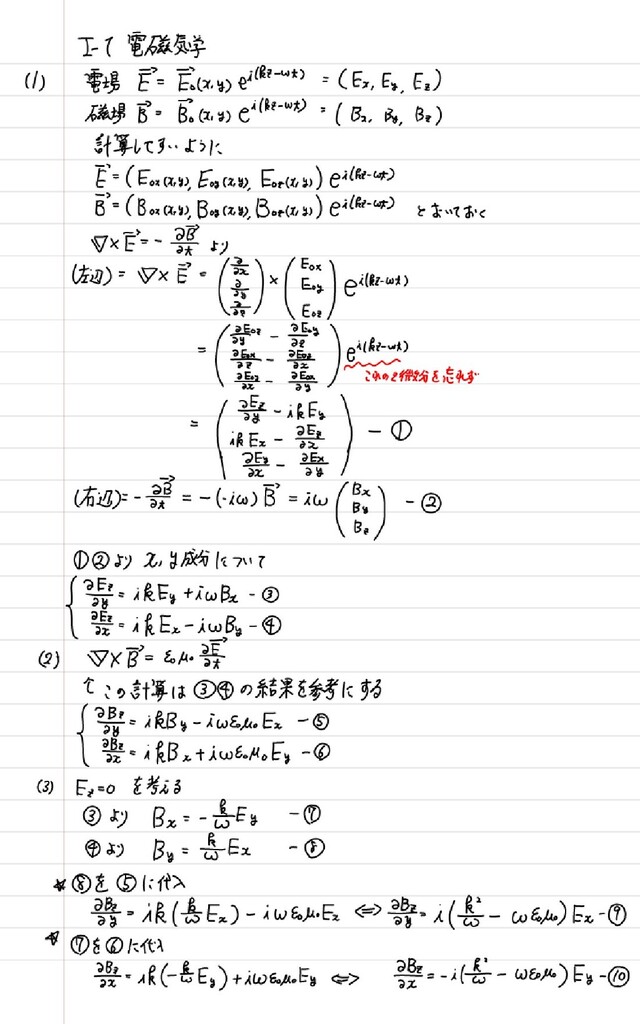 I-1 電磁気学
(1) 電場 E⃗ = E⃗₀(x,y) e^{i(kz-ωt)} = (Ex, Ey, Ez)
磁場 B⃗ = B⃗₀(x,y) e^{i(kz-ωt)} = (Bx, By, Bz)
計算しやすいように
E⃗ = (E₀x(x,y), E₀y(x,y), E₀z(x,y)) e^{i(kz-ωt)}
B⃗ = (B₀x(x,y), B₀y(x,y), B₀z(x,y)) e^{i(kz-ωt)} とおいておく
∇×E⃗ = -∂B⃗/∂t より
(左辺) = ∇×E⃗ = (∂/∂x, ∂/∂y, ∂/∂z) × (E₀x, E₀y, E₀z) e^{i(kz-ωt)}
= (∂E₀z/∂y - ∂E₀y/∂z, ∂E₀x/∂z - ∂E₀z/∂x, ∂E₀z/∂x - ∂E₀x/∂y) e^{i(kz-ωt)}
これのz微分を忘れず
= (∂Ez/∂y - ikEy, ikEx - ∂Ez/∂x, ∂Ey/∂x - ∂Ex/∂y) - ①
(右辺) = -∂B⃗/∂t = -(-iω)B⃗ = iω (Bx, By, Bz) - ②
①②より x, y成分について
∂Ez/∂y = ikEy + iωBx - ③
∂Ez/∂x = ikEx - iωBy - ④
(2) ∇×B⃗ = ε₀μ₀ ∂E⃗/∂t
↑ この計算は③④の結果を参考にする
∂Bz/∂y = ikBy - iωε₀μ₀Ex - ⑤
∂Bz/∂x = ikBx + iωε₀μ₀Ey - ⑥
(3) Ez=0 を考える
③より Bx = -k/ω Ey - ⑦
④より By = k/ω Ex - ⑧
☆ ⑧を⑤に代入
∂Bz/∂y = ik(k/ω Ex) - iωε₀μ₀Ex ⇔ ∂Bz/∂y = i(k²/ω - ωε₀μ₀) Ex - ⑨
☆ ⑦を⑥に代入
∂Bz/∂x = ik(-k/ω Ey) + iωε₀μ₀Ey ⇔ ∂Bz/∂x = -i(k²/ω - ωε₀μ₀) Ey - ⑩